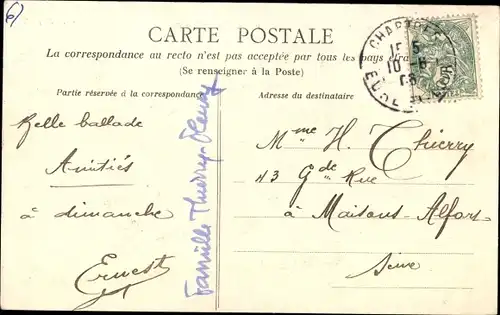 6)
CARTE POSTALE
La correspondance au recto n'est pas acceptée par tous les pays étra
(Se renseigner à la Poste)
Partie réservée à la correspondance
Adresse du destinataire
CHARTRES
15 5
10 - 6
08
EURE
Belle ballade
Amitiés
à dimanche
Ernest
Famille Thierry-
Mme H. Thierry
43 Gde Rue
à Maisons-Alfort
Seine